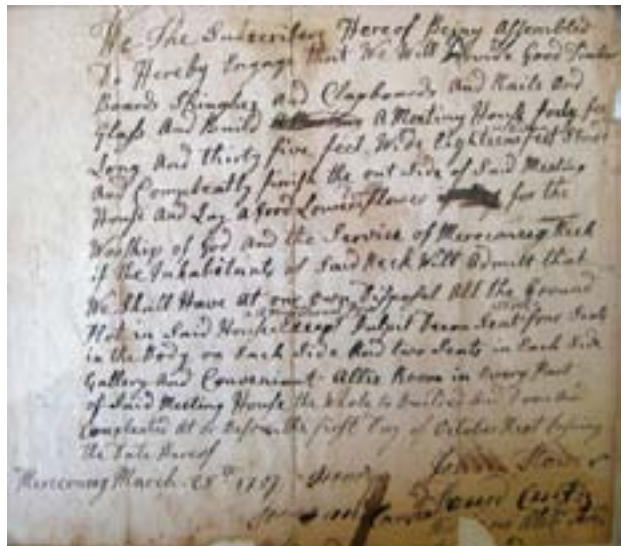 We The Subscribers Hereof Being Assembled
Do Hereby Engage that We Will Provide Good Timber
Boards Shingles And Clapboards And Nails And
Glass And Build A Meeting House forty feet
Long And thirty five feet Wide Eighteen feet
And Compleatly finish the out side of Said Meeting
House And Lay a Good Lower flower for the
Worship of God And the Service of Merreconeeg Neck
if the Inhabitants of Said Neck Will Admit that
We Shall Have At our own Disposal All the Ground
Plot in Said House Except Pulpit Decon Seat four Seats
in the Body on Each Side And two Seats in Each Side
Gallery And Conveniant Allie Room in Every Part
of Said Meeting House the Whole to
Compleated At or Before the first Day of October Next
the Date Hereof
March 25th 1757
Curtis